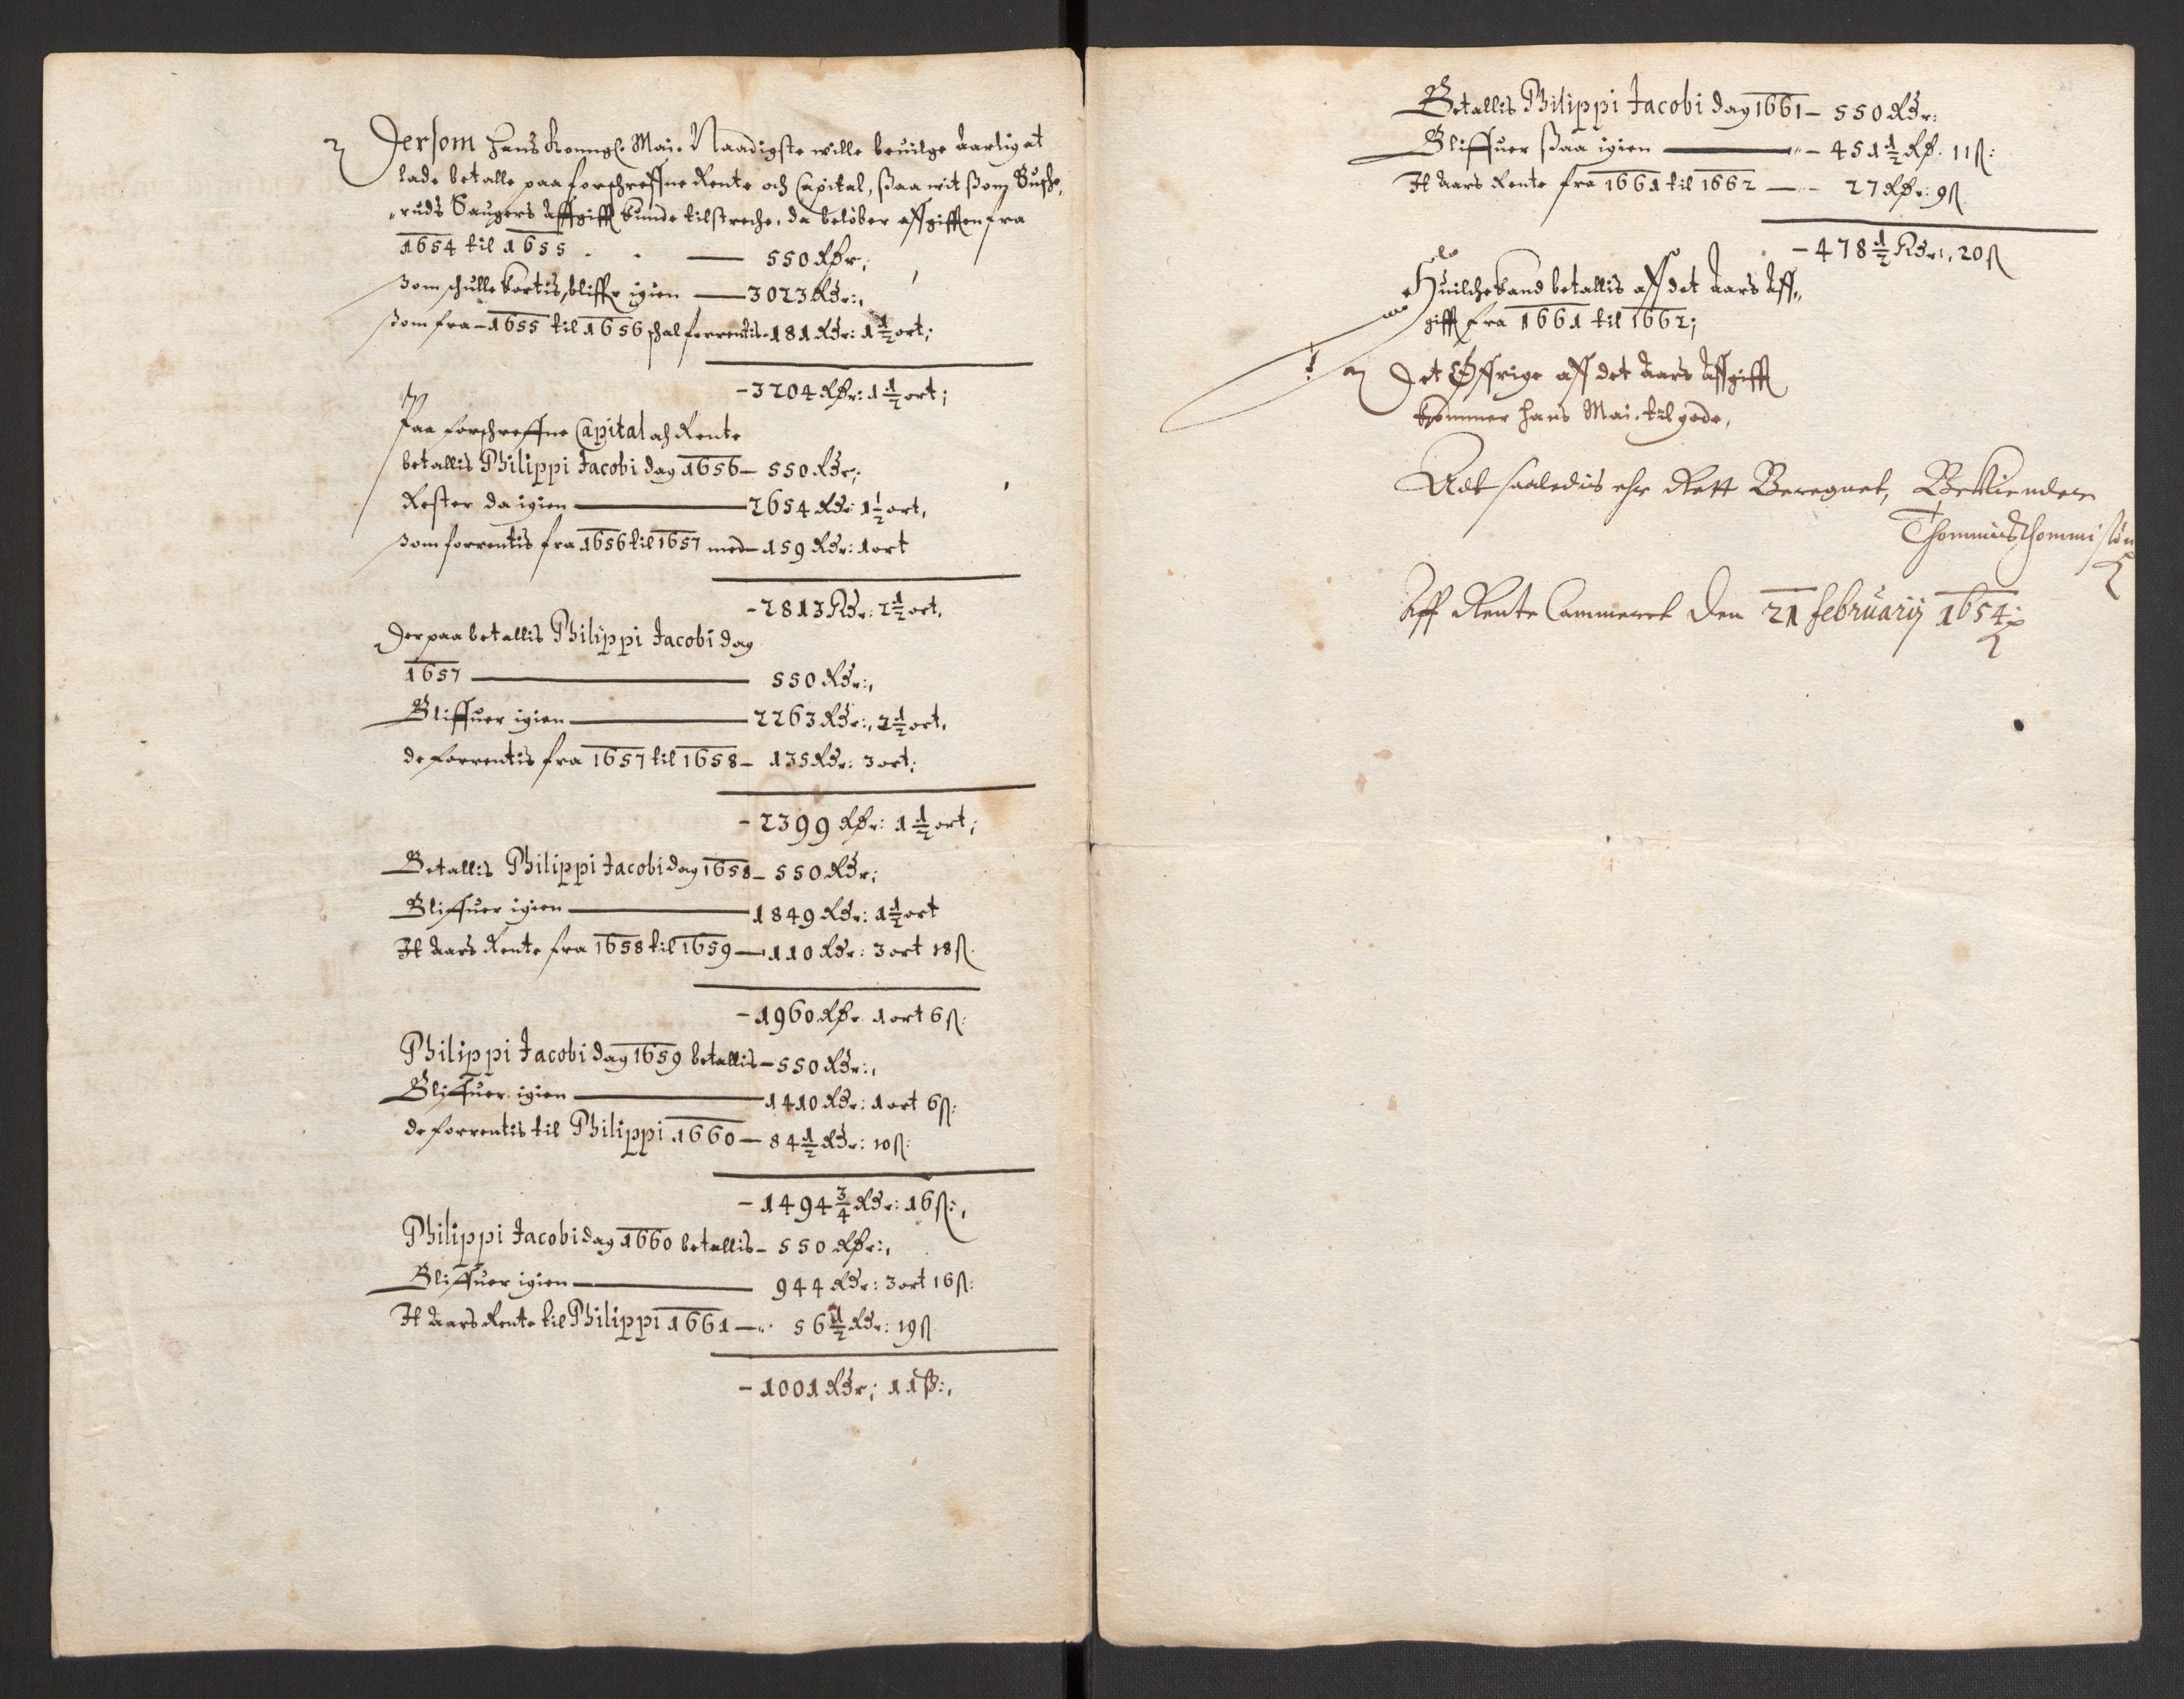 Dersom Hans Konngl. Mai. Naadigste wille beuilge Aarlig at
lade betalle paa forschreffne Rente och Capital, ßaa wit ßom Buske,
"ruds Saugers Affgifft kunde tilstreche, da beløber affgifften fra
1654 til 1655 . . — 550 Rdr;
ßom schulle kortis, bliffr igien — 3023 Rdr:,
ßom fra – 1655 til 1656 schal forrentis - 181 Rdr: 1½ ort;
- 3204 Rdr: 1½ ort;
Paa forschreffne Capital och Rente
betallis Philippi Jacobi dag 1656 – 550 Rdr;
Rester da igien — 2654 Rdr: 1½ ort,
ßom forrentis fra 1656 til 1657 med – 159 Rdr: 1 ort
- 2813 Rdr: 2½ ort.
Der paa betallis Philippi Jacobi dag
1657 — 550 Rdr:,
Bliffuer igien — 2263 Rdr:, 2½ ort,
de forrentis fra 1657 til 1658 – 135 Rdr: 3 ort;
- 2399 Rdr: 1½ ort;
Betallis Philippi Jacobi dag 1658 – 550 Rdr;
Bliffuer igien — 1849 Rdr: 1½ ort
Et Aars Rente fra 1658 til 1659 — 110 Rdr: 3 ort 18 ß.
- 1960 Rdr. 1 ort 6 ß:
Philippi Jacobi dag 1659 betallis – 550 Rdr:,
Bliffuer igien — 1410 Rdr: 1 ort 6 ß:
de forrentis til Philippi 1660 – 84½ Rdr: 10 ß:
- 1494¾ Rdr: 16 ß:,
Philippi Jacobi dag 1660 betallis – 550 Rdr:,
Bliffuer igien — 944 Rdr: 3 ort 16 ß:
Et Aars Rente til Philippi 1661 — 56½ Rdr: 19 ß
- 1001 Rdr; 11 ß:,
Betallis Philippi Jacobi dag 1661 – 550 Rdr:
Bliffuer ßaa igien — 451½ Rd. 11 ß:
Et Aars Rente fra 1661 til 1662 — 27 Rdr: 9 ß
- 478½ Rdr:, 20 ß
Huilche kand betallis aff det Aars Aff,,
gifft fra 1661 til 1662;
Det Øffrige aff det Aars Affgifft
kommer hans Mai. til gode,
Adt saaledis ehr Rett Beregnet, Bekiender
Thommis Thommissøn
Aff Rente Cammeret den 21 februarij 1654: